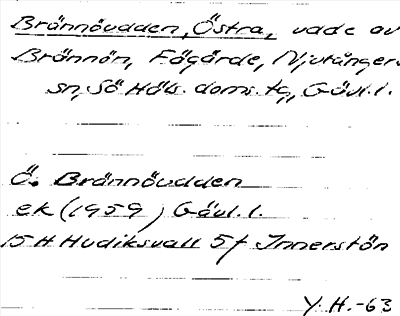 Brännöudden, Östra, udde av
Brännön, Fågärde, Njutångers
sn, Sö Häls. doms. tg, Gävl. l.
Ö. Brännöudden
ek (1959) Gävl. l.
15 H Hudiksvall 5 f Innerstön
Y. H. -63